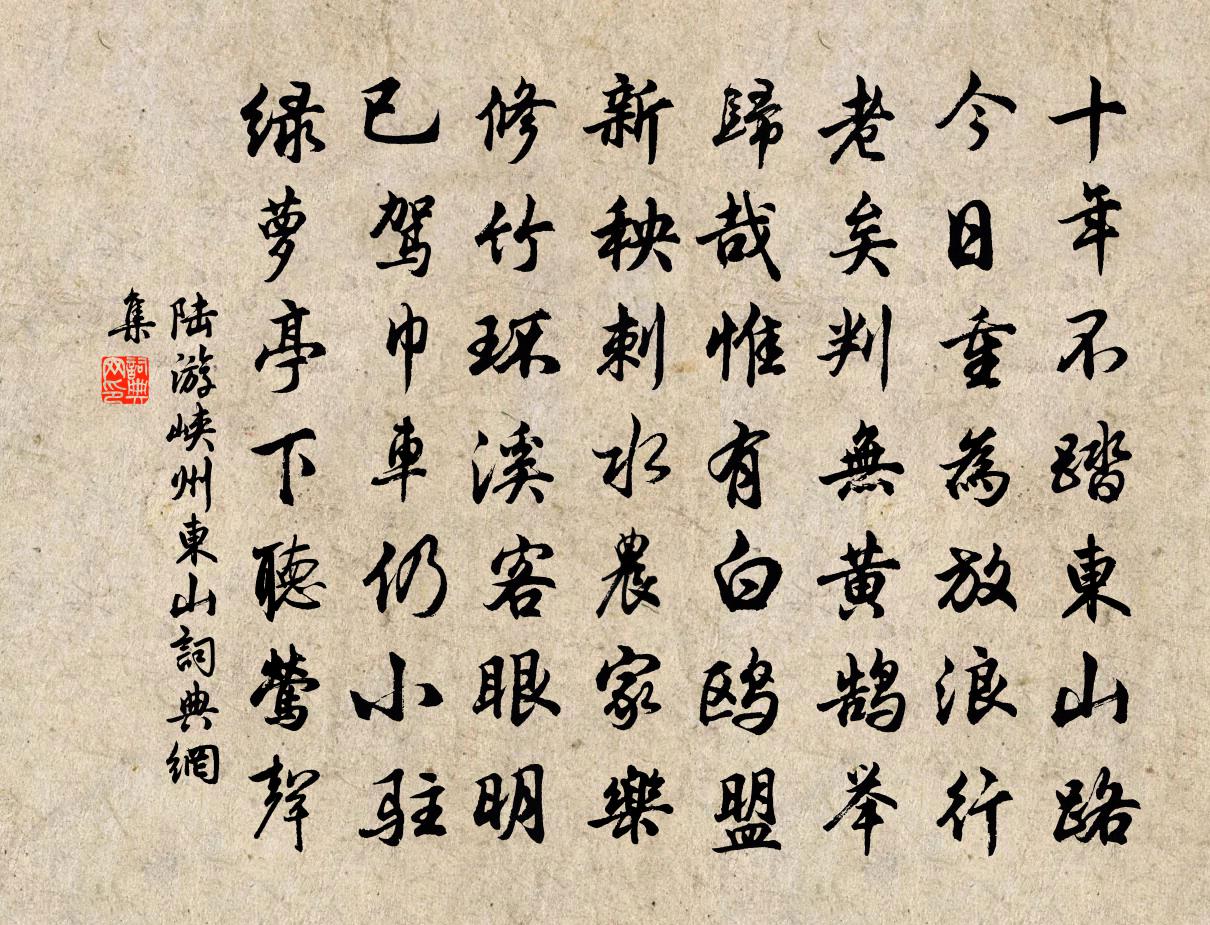 十年不踏東山路
今日重為放浪行
老矣判無黄鹄举
歸哉惟有白鸥盟
新秧刺水農家樂
修竹环溪客眼明
已驾巾車仍小駐
绿萝亭下聽莺聲
陆游峡州東山詞典網
集
詞典
网印